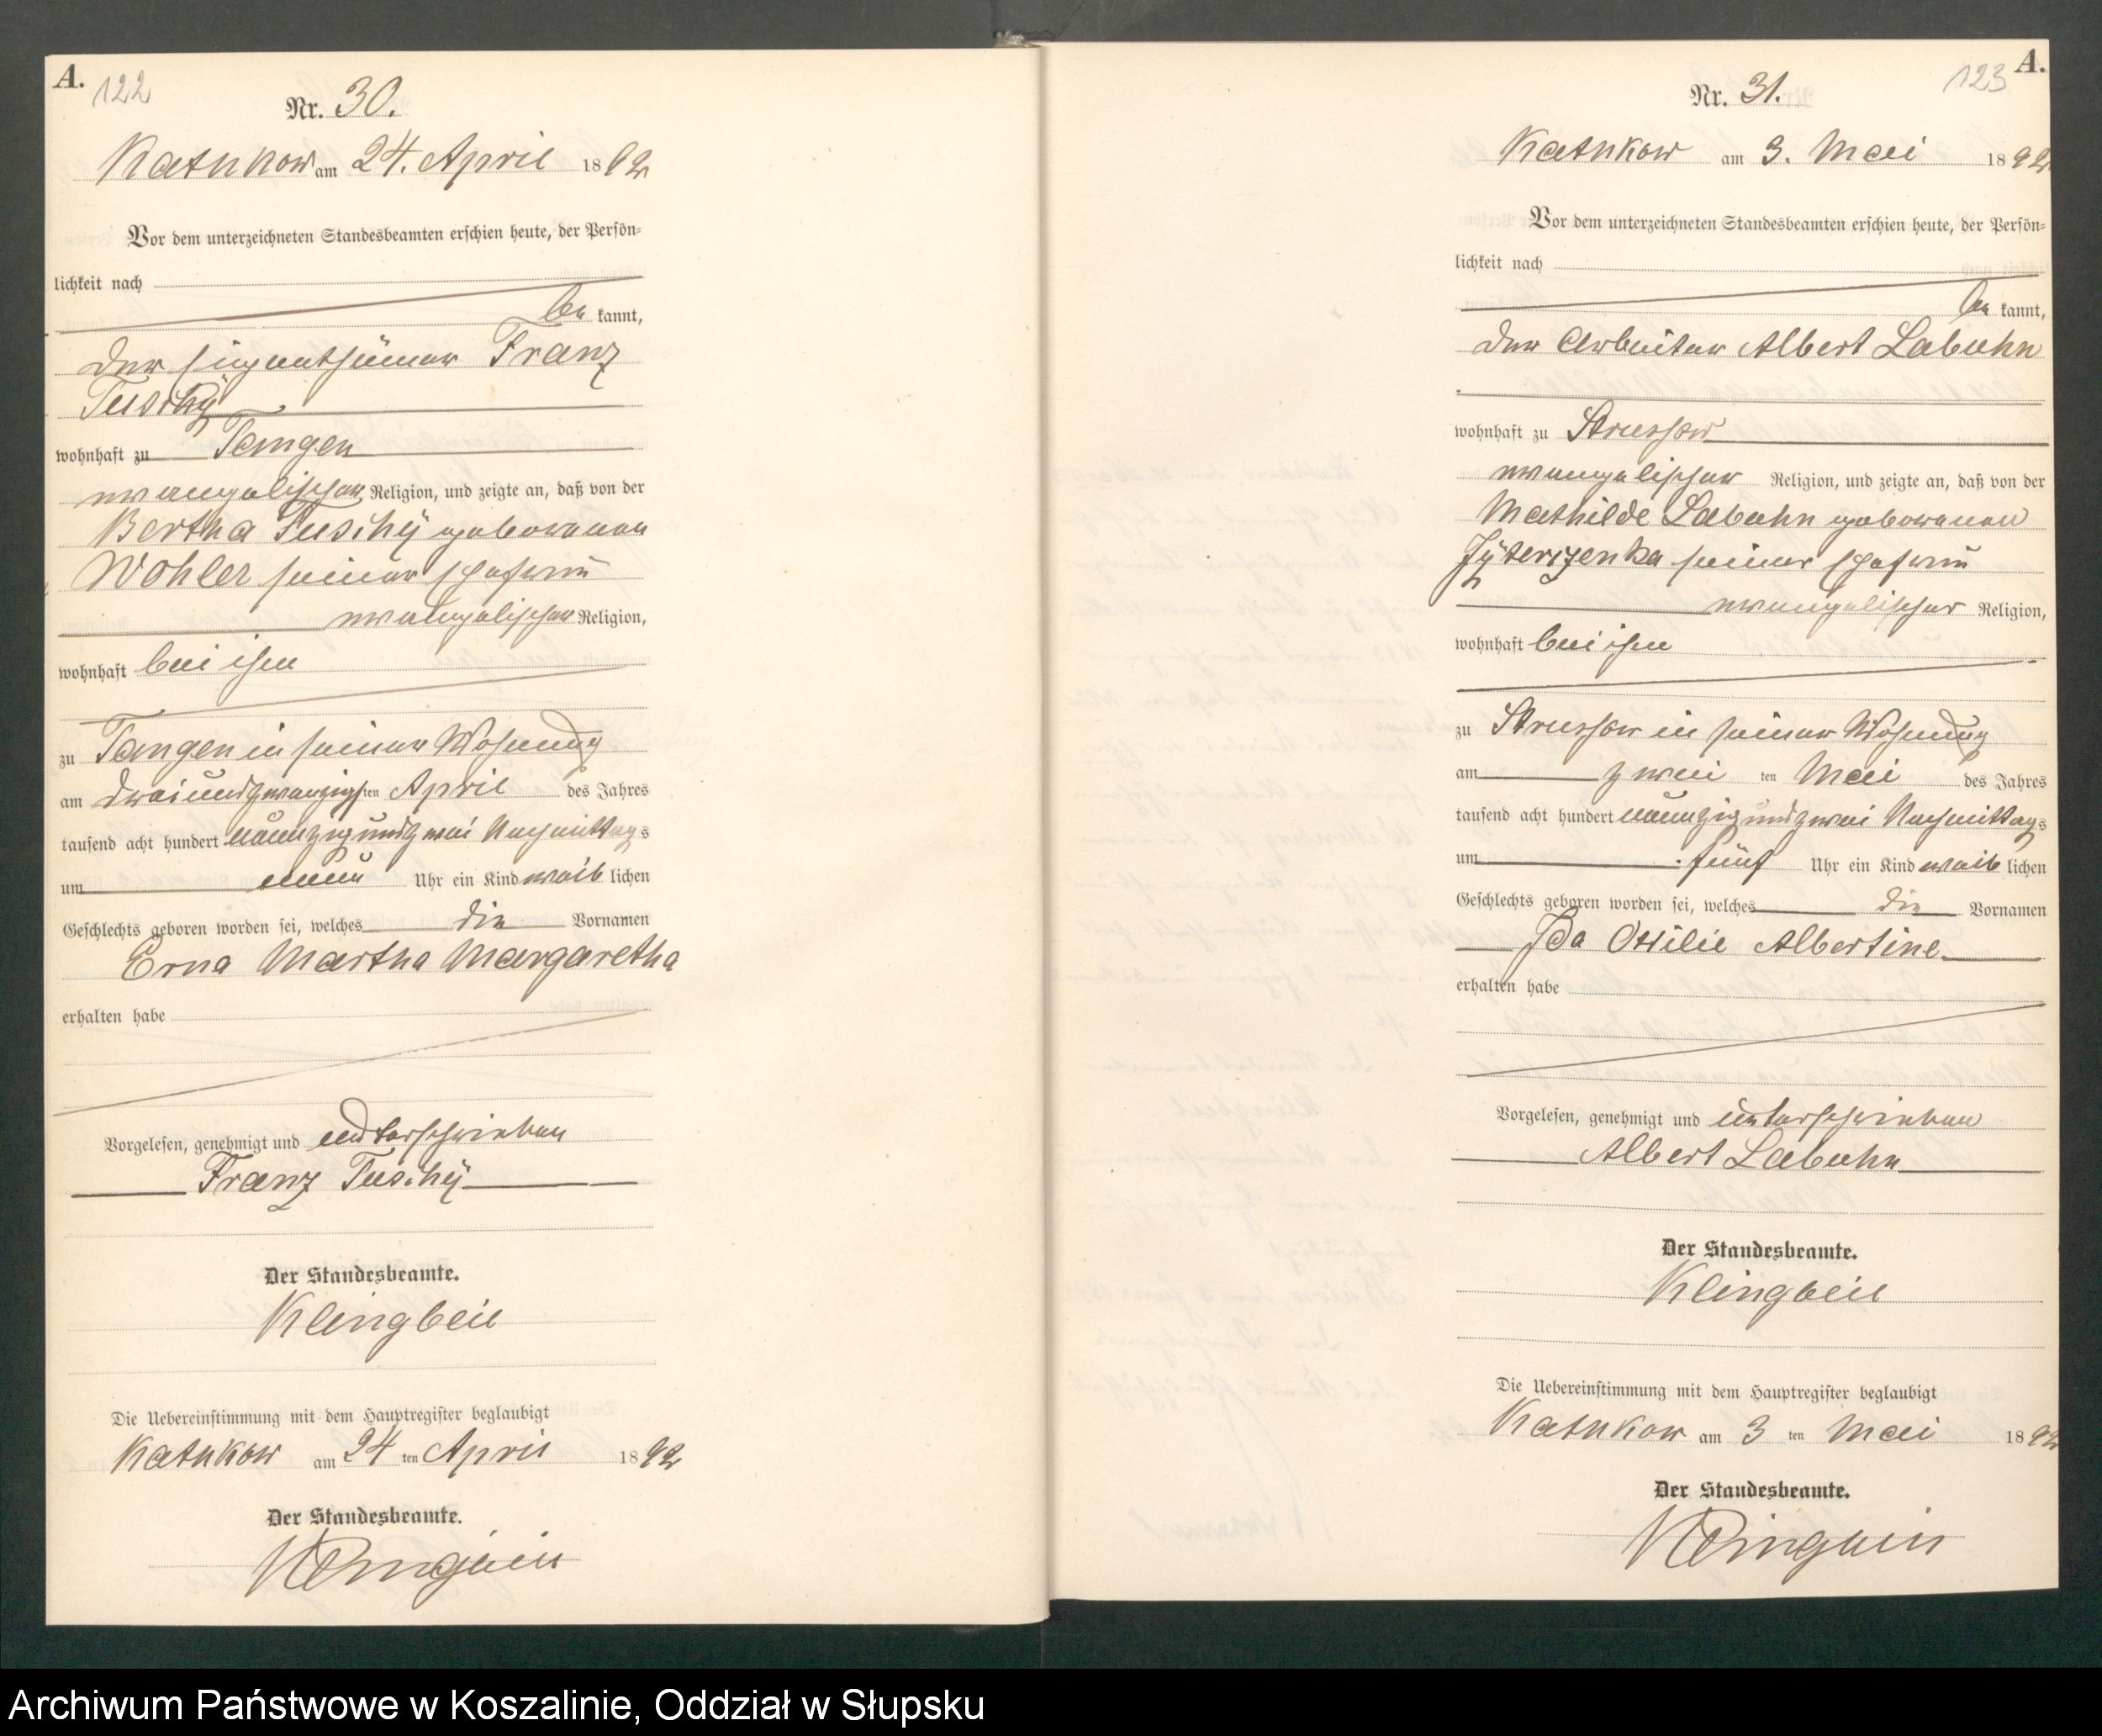 A. 122
Nr. 30.
Katkow am 24. April 1892
Vor dem unterzeichneten Standesbeamten erschien heute, der Persön-
lichkeit nach
be kannt,
der Eigenthümer Franz
Tuschy
wohnhaft zu Tangen
evangelischer Religion, und zeigte an, daß von der
Bertha Tuschy geborenen
Wohler seiner Ehefrau
evangelischer Religion,
wohnhaft bei ihm
zu Tangen in seiner Wohnung
am dreiundzwanzigsten April des Jahres
tausend acht hundert neunzig und zwei Nachmittags
um neun Uhr ein Kind weib lichen
Geschlechts geboren worden sei, welches die Vornamen
Erna Martha Margaretha
erhalten habe
Vorgelesen, genehmigt und unterschrieben
Franz Tuschy
Der Standesbeamte.
Klingbeil
Die Uebereinstimmung mit dem Hauptregister beglaubigt
Katkow am 24 ten April 1892
Der Standesbeamte.
Klingbeil
123 A.
Nr. 31.
Katkow am 3. Mai 1892
Vor dem unterzeichneten Standesbeamten erschien heute, der Persön-
lichkeit nach
be kannt,
der Arbeiter Albert Labuhn
wohnhaft zu Strussow
evangelischer Religion, und zeigte an, daß von der
Mathilde Labuhn geborenen
seiner Ehefrau
evangelischer Religion,
wohnhaft bei ihm
zu Strussow in seiner Wohnung
am zwei ten Mai des Jahres
tausend acht hundert neunzig und zwei Nachmittags
um fünf Uhr ein Kind weib lichen
Geschlechts geboren worden sei, welches die Vornamen
Ida Ottilie Albertine
erhalten habe
Vorgelesen, genehmigt und unterschrieben
Albert Labuhn
Der Standesbeamte.
Klingbeil
Die Uebereinstimmung mit dem Hauptregister beglaubigt
Katkow am 3 ten Mai 1892
Der Standesbeamte.
Klingbeil
Archiwum Państwowe w Koszalinie, Oddział w Słupsku